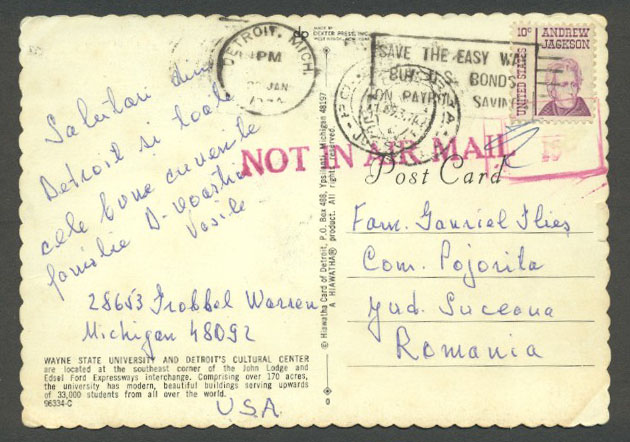 DETROIT, MICH.
PM
JAN
SAVE THE EASY WAY
BUY U.S. BONDS
ON PAYROLL
SAVINGS
10c ANDREW JACKSON
UNITED STATES
dp
MADE BY
DEXTER PRESS, INC.
WEST NYACK, NEW YORK
NOT IN AIR MAIL
15
Post Card
Salutari din
Detroit si toate
cele bune cuvenite
familie D-voastra
Vasile
28653 Grobbel Warren
Michigan 48092
U.S.A.
Fam. Gavriel Ilies
Com. Pojorita
Jud. Suceava
Romania
© Hiawatha Card of Detroit, P.O. Box 488, Ypsilanti, Michigan 48197
A HIAWATHA® product. All rights reserved.
WAYNE STATE UNIVERSITY AND DETROIT'S CULTURAL CENTER
are located at the southeast corner of the John Lodge and
Edsel Ford Expressways interchange. Comprising over 170 acres,
the university has modern, beautiful buildings serving upwards
of 33,000 students from all over the world.
96334-C